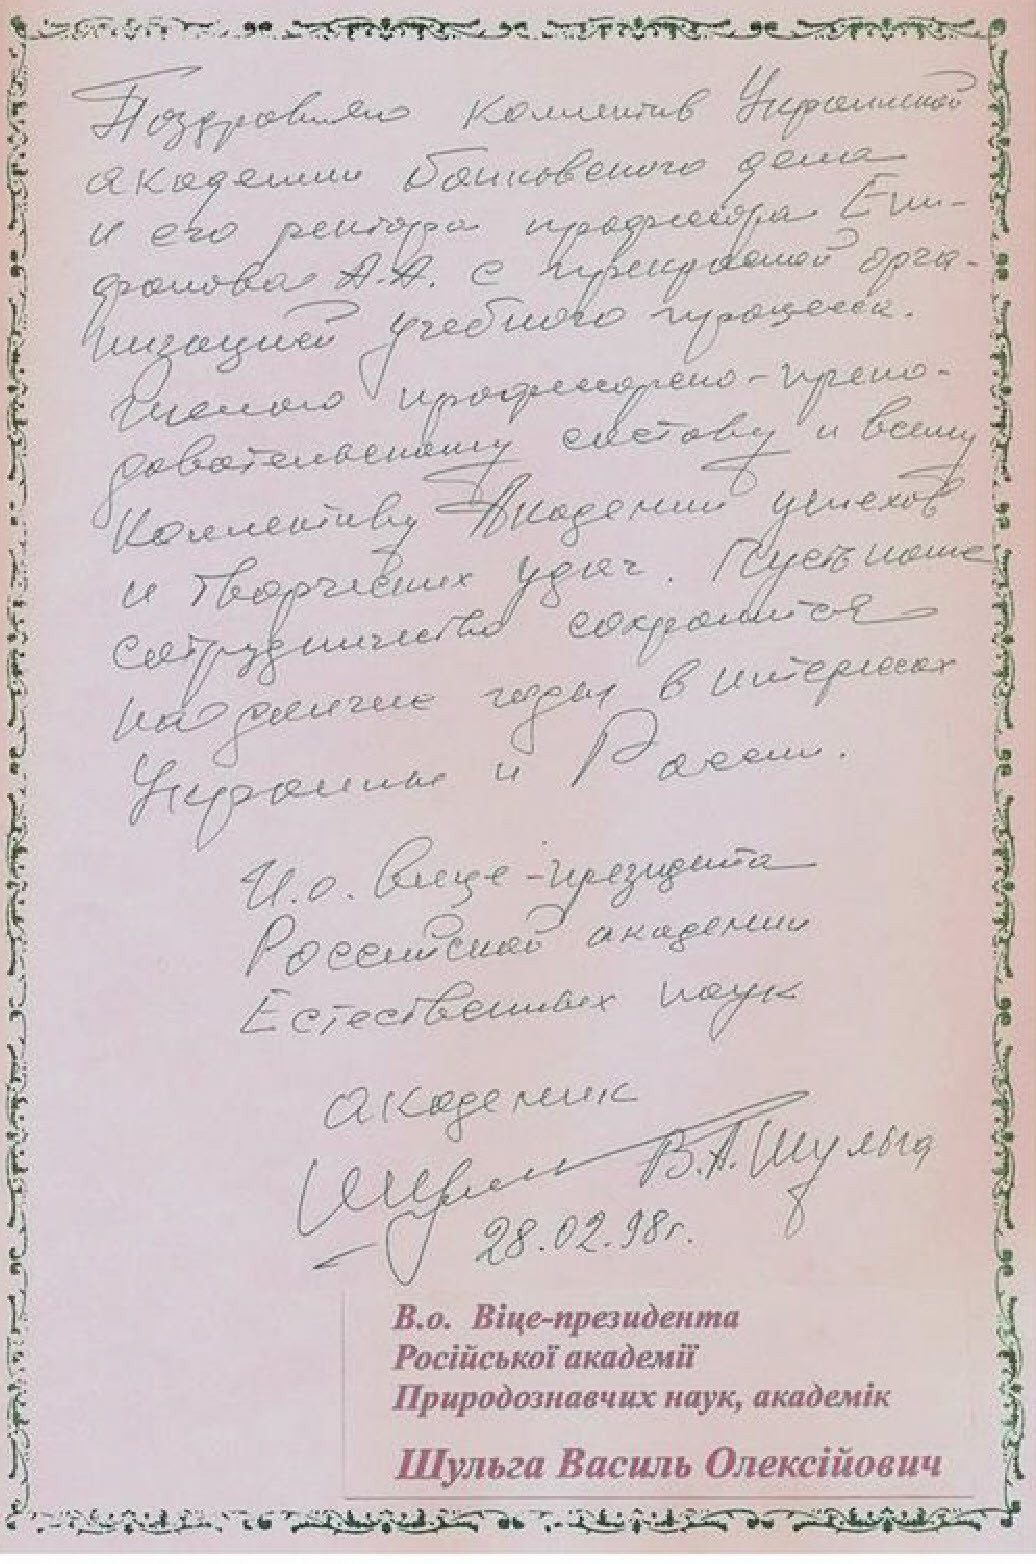 Поздравляю коллектив Украинской
академии банковского дела
и его ректора профессора Епи-
фанова А.А. с прекрасной орга-
низацией учебного процесса.
Желаю профессорско-препо-
давательскому составу и всему
коллективу Академии успехов
и творческих удач. Пусть наше
сотрудничество сохранится
на долгие годы в интересах
Украины и России.
И.о. вице-президента
Российской академии
Естественных наук
академик
В.А. Шульга
28.02.98г.
В.о. Віце-президента
Російської академії
Природознавчих наук, академік
Шульга Василь Олексійович